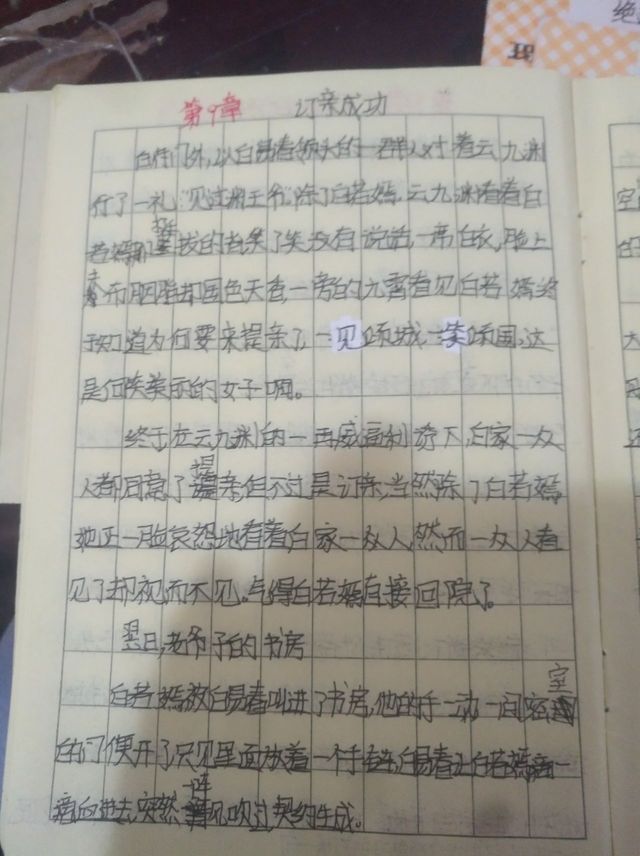 绝
现
第9章 订亲成功
白府门外,以白易春领头的一群人对着云九渊
行了一礼"见过渊王爷"除了白若嫣,云九渊看着白
若嫣那挺拔的背笑了笑没有说话,一席白衣,脸上
未布胭脂却国色天香,一旁的九霄看见白若嫣终
于知道为何要来提亲了,一见倾城,一笑倾国,这
是何等美丽的女子啊。
终于在云九渊的一再威逼利诱下,白家一众
人都同意了提亲,但不过是订亲,当然除了白若嫣,
她正一脸哀怨地看着白家一众人,然而一众人看
见了却视而不见。气得白若嫣直接回院了。
翌日,老爷子的书房
白若嫣被白易春叫进了书房,他的手一动一间密室
的门便开了只见里面放着一个手链,白易春让白若嫣滴一
滴血进去,突然一阵风吹过契约生成。